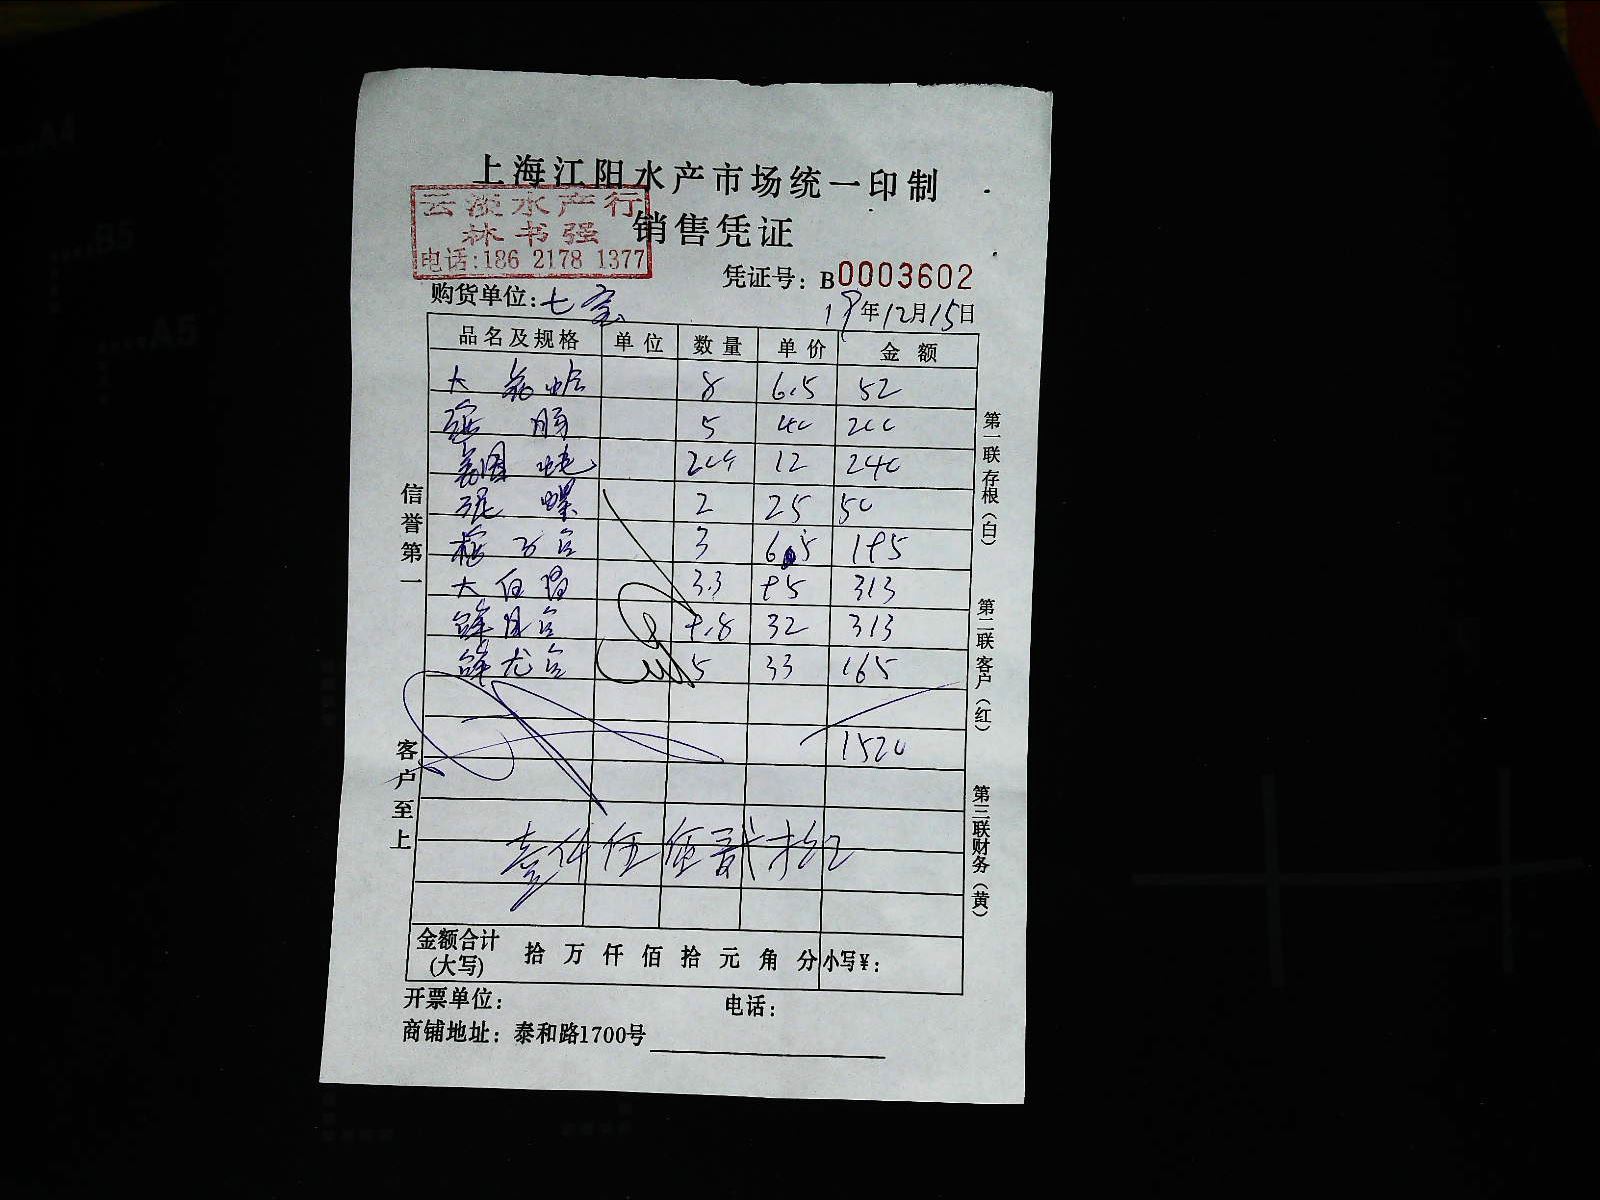 上海江阳水产市场统一印制
云淡水产行
林书强
电话:186 2178 1377
销售凭证
凭证号：B0003602
购货单位:七宝
19年12月15日
品名及规格 单位 数量 单价 金额
大 8 6.5 52
5 40 200
12 240
泥螺 2 25 50
3 65 195
大 3.3 95 313
9.8 32 313
5 33 165
1520
壹仟伍佰贰拾
金额合计(大写) 拾 万 仟 佰 拾 元 角 分 小写¥:
开票单位: 电话:
商铺地址：泰和路1700号
信誉第一
客户至上
第一联存根（白）
第二联客户（红）
第三联财务（黄）
A4
B5
A5